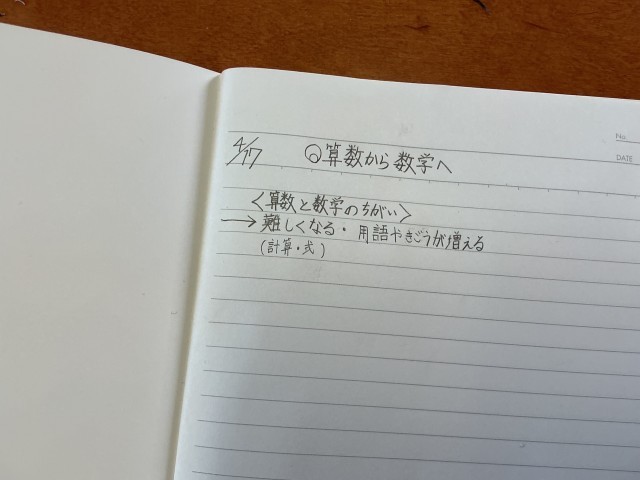 No.
DATE
4/17 ◎算数から数学へ
<算数と数学のちがい>
→難しくなる・用語やきごうが増える
(計算・式)